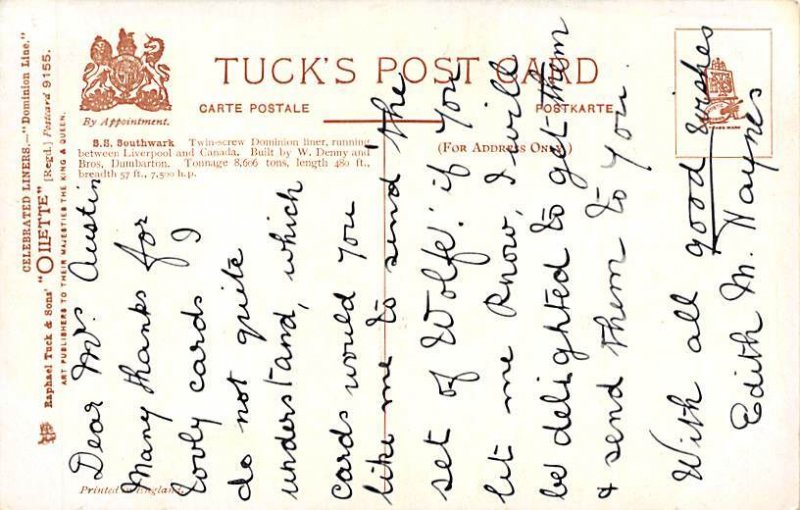 CELEBRATED LINERS.—"Dominion Line."
Raphael Tuck & Sons' "OILETTE" [Regd.] Postcard 9155.
ART PUBLISHERS TO THEIR MAJESTIES THE KING & QUEEN.
By Appointment.
TUCK'S POST CARD
CARTE POSTALE
POSTKARTE
(FOR ADDRESS ONLY)
S.S. Southwark Twin-screw Dominion liner, running
between Liverpool and Canada. Built by W. Denny and
Bros, Dumbarton. Tonnage 8,606 tons, length 480 ft.,
breadth 57 ft., 7,500 h.p.
Printed in England.
Dear Mr Austin
Many thanks for
lovly cards I
do not quite
understand, which
cards would you
like me to send 'the
set of Wolfe'. if you
let me know, I will
be delighted to get them
& send them to you.
With all good wishes
Edith M. Haynes